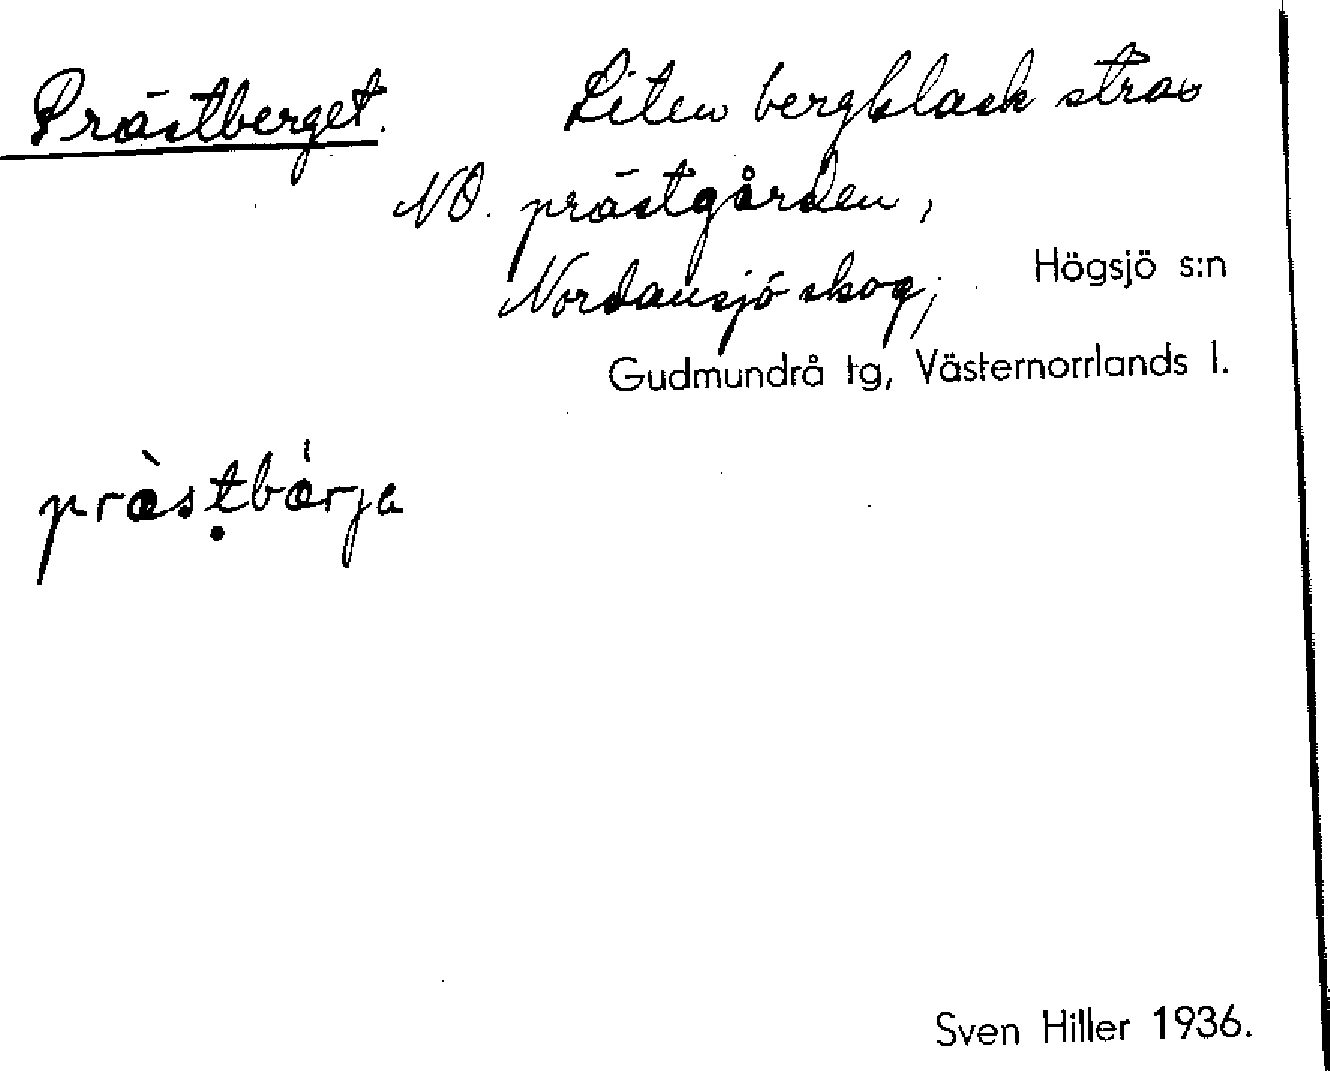 Prästberget. Liten bergklack strax
NO. prästgården,
Nordansjö skog, Högsjö s:n
Gudmundrå tg, Västernorrlands l.
præ̀sṭbǽrja
Sven Hiller 1936.